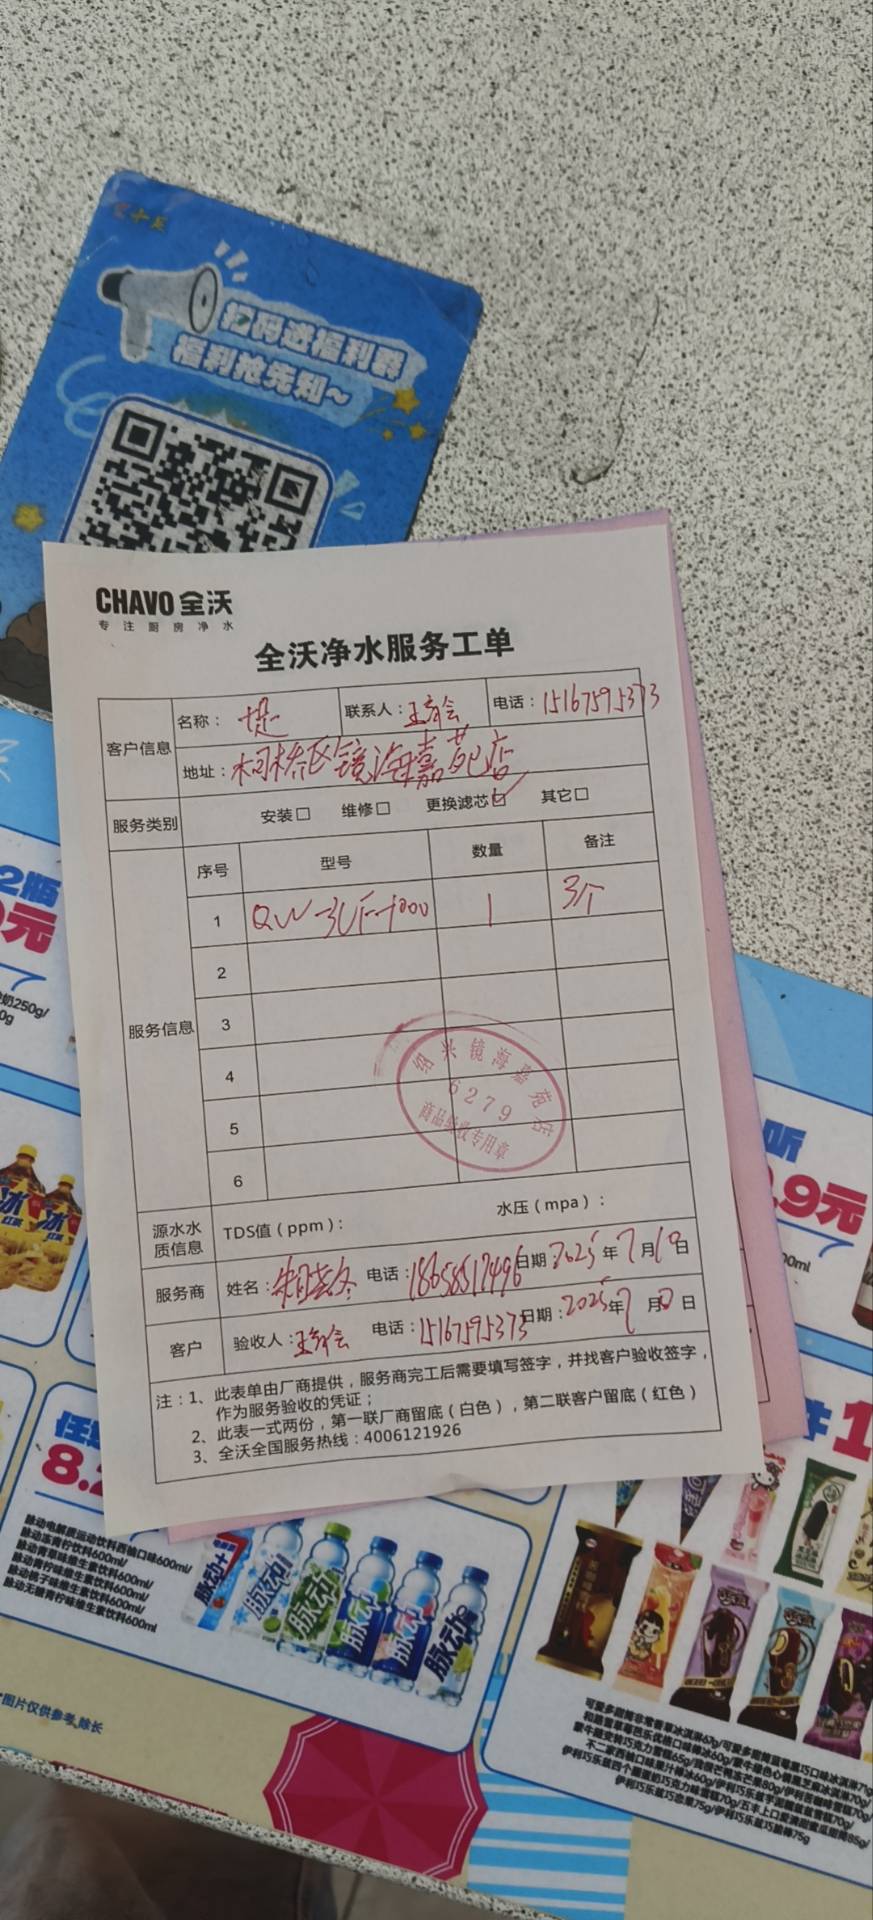 扫码进福利群
福利抢先知~
CHAVO 全沃
专注厨房净水
全沃净水服务工单
客户信息
名称：
联系人：王彩会
电话：15167595373
地址：柯桥区镜海嘉苑店
服务类别
安装□ 维修□ 更换滤芯☑ 其它□
服务信息
序号 型号 数量 备注
1 QW-3UF-1000 1 3个
2
3
4
5
6
绍兴镜海嘉苑店
6279
商品验收专用章
源水水质信息
TDS值（ppm）： 水压（mpa）：
服务商
姓名： 电话：18658517496 日期：2025年7月10日
客户
验收人：王彩会 电话：15167595373 日期：2025年7月10日
注：1、此表单由厂商提供，服务商完工后需要填写签字，并找客户验收签字，
作为服务验收的凭证；
2、此表一式两份，第一联厂商留底（白色），第二联客户留底（红色）
3、全沃全国服务热线：4006121926
2瓶
元
奶250g/
0g
听
.9元
00ml
件1
8.
脉动电解质运动饮料西柚口味600ml/
脉动冻青柠饮料600ml/
脉动青草味维生素饮料600ml/
脉动青柠味维生素饮料600ml/
脉动桃子味维生素饮料600ml/
脉动无糖青柠味维生素饮料600ml
脉动+
脉动
脉动
脉动
脉动
脉动
*图片仅供参考,除长